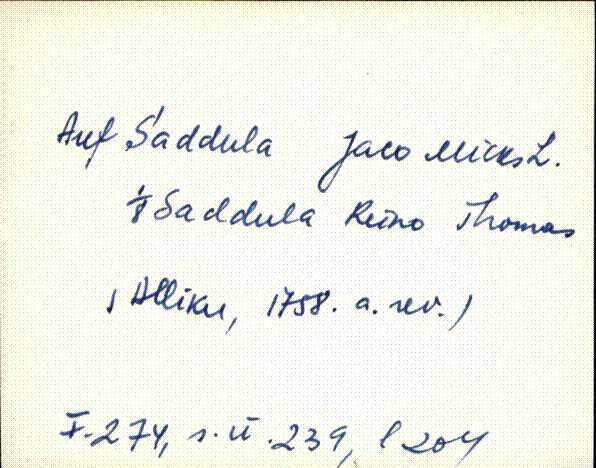 Auf Saddula Jaco Micks L.
1/8 Saddula Reino Thomas
(Alliku, 1758. a. rev.)
F. 274, s. ü. 239, l 204